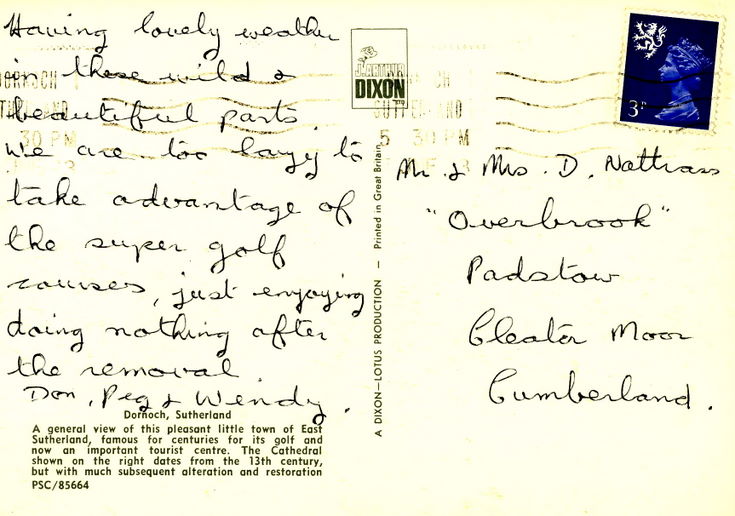 Having lovely weather
in these wild &
beautiful parts.
We are too lazy to
take advantage of
the super golf
courses, just enjoying
doing nothing after
the removal.
Don, Peg & Wendy.
Dornoch, Sutherland
A general view of this pleasant little town of East
Sutherland, famous for centuries for its golf and
now an important tourist centre. The Cathedral
shown on the right dates from the 13th century,
but with much subsequent alteration and restoration
PSC/85664
J. ARTHUR
DIXON
A DIXON—LOTUS PRODUCTION — Printed in Great Britain
30 PM
5 30 PM
3P
Mr. & Mrs. D. Nattrass
"Overbrook"
Padstow
Cleator Moor
Cumberland.